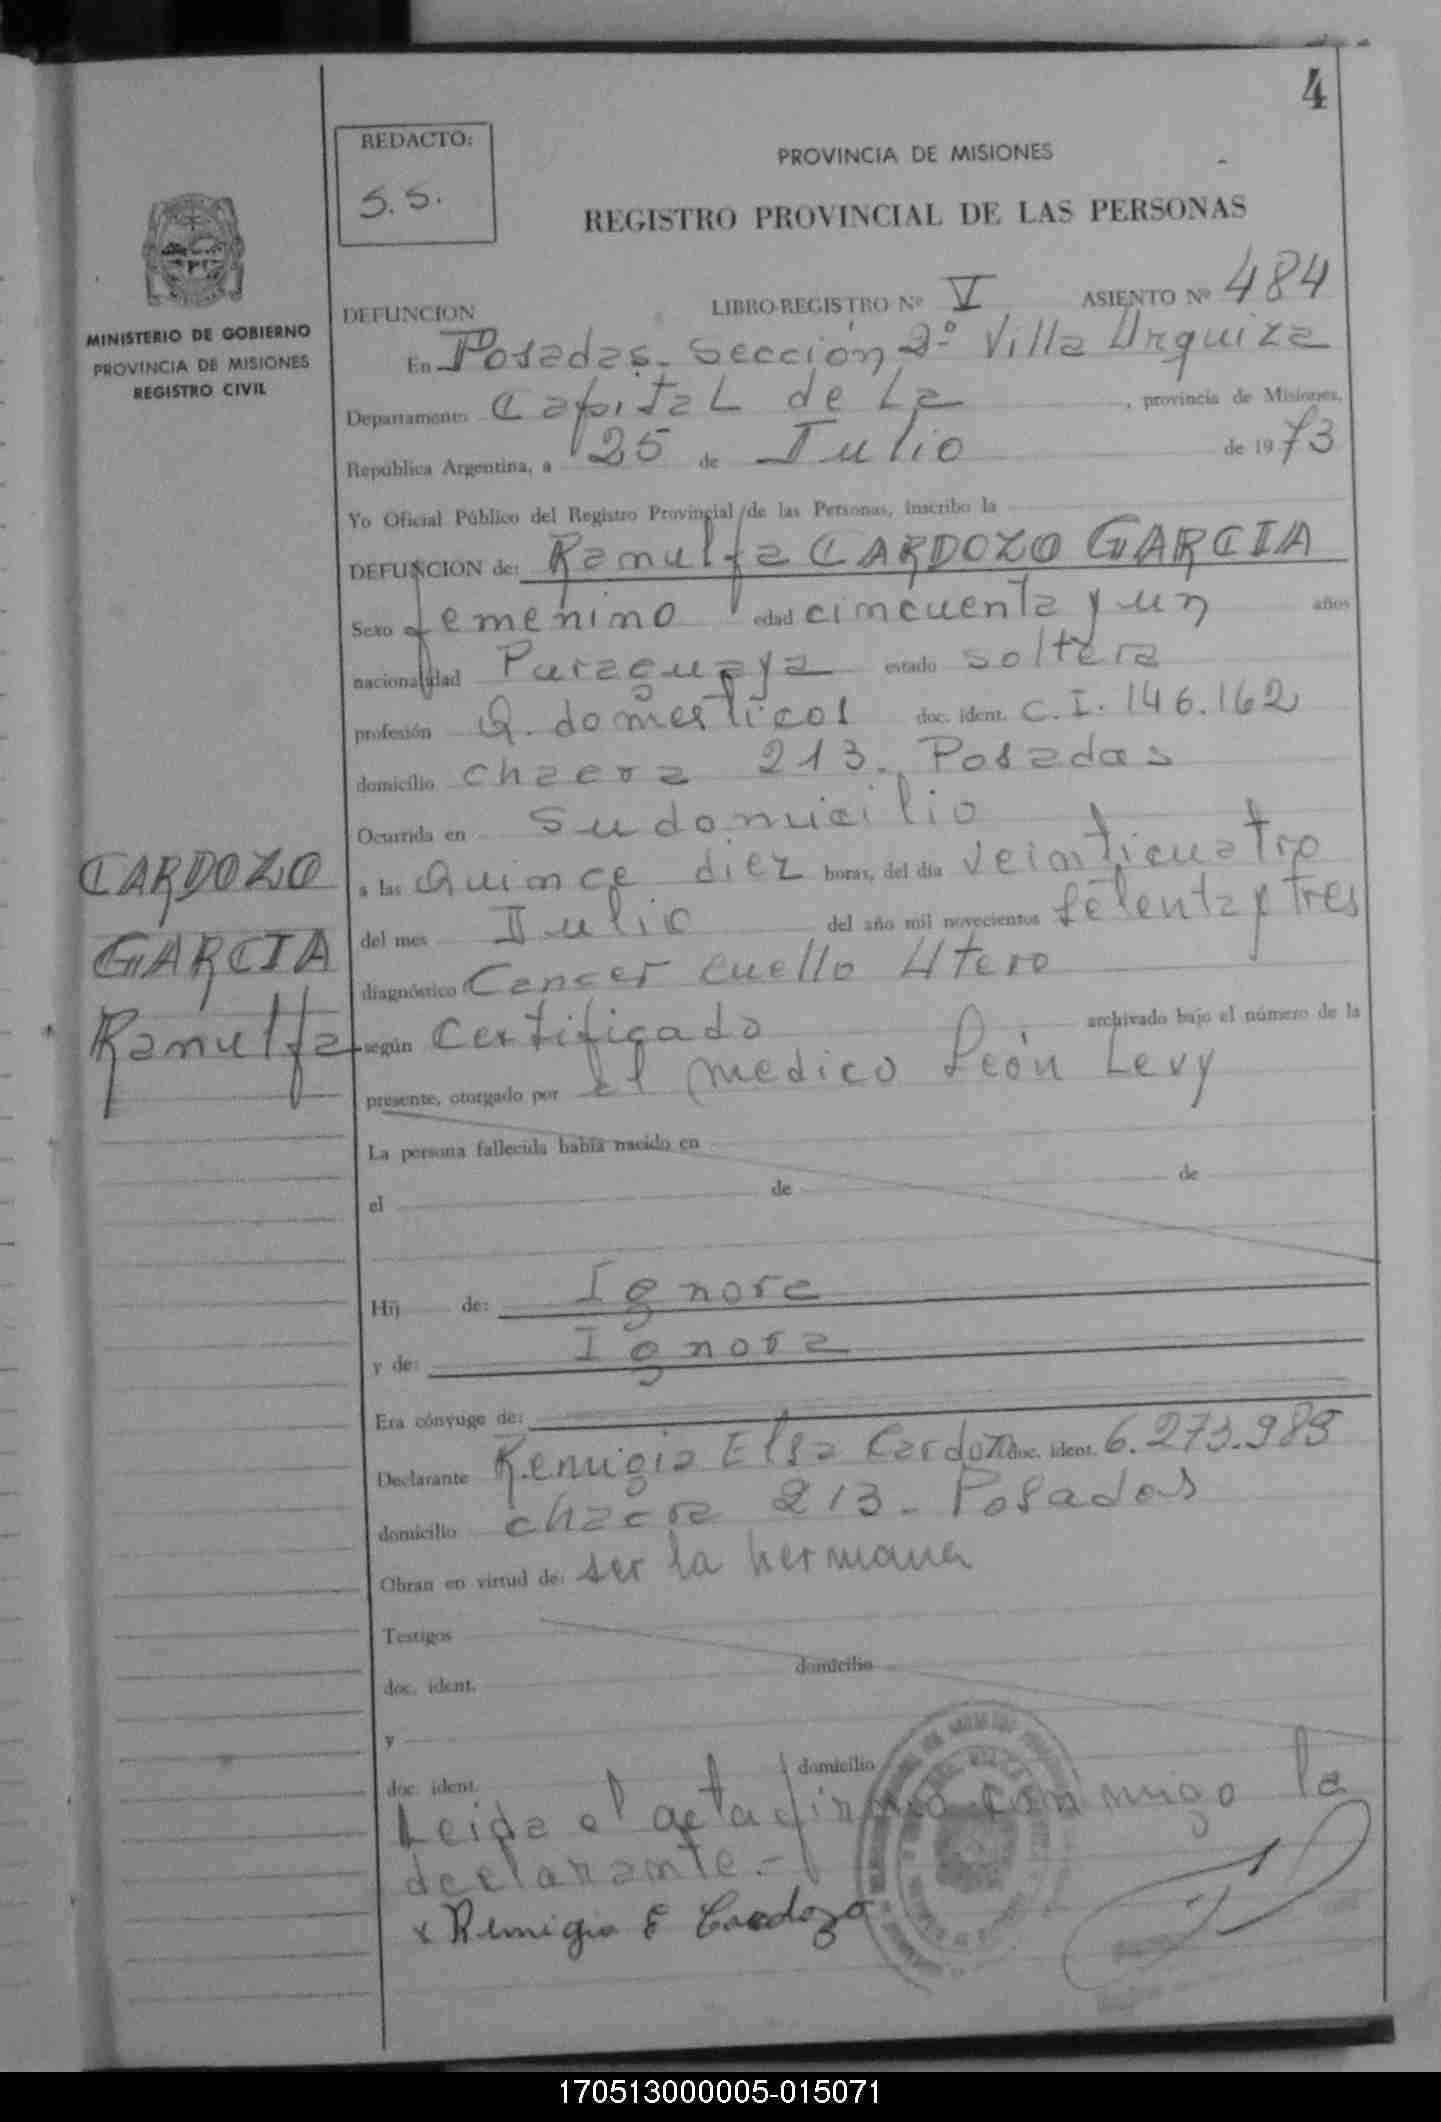 4
REDACTO:
S. S.
PROVINCIA DE MISIONES
REGISTRO PROVINCIAL DE LAS PERSONAS
MINISTERIO DE GOBIERNO
PROVINCIA DE MISIONES
REGISTRO CIVIL
DEFUNCION LIBRO-REGISTRO Nº V ASIENTO Nº 484
En Posadas. Sección 2º Villa Urquiza
Departamento Capital de La, provincia de Misiones,
República Argentina, a 25 de Julio de 1973
Yo Oficial Público del Registro Provincial de las Personas, inscribo la
DEFUNCION de: Ramulfa CARDOZO GARCIA
Sexo femenino edad cincuenta y un años
nacionalidad Paraguaya estado soltera
profesión Q. domésticos doc. ident. C. I. 146.162
domicilio chacra 213. Posadas
Ocurrida en Su domicilio
a las Quince diez horas, del día veinticuatro
del mes Julio del año mil novecientos setenta y tres
diagnóstico Cancer cuello Utero
según certificado archivado bajo el número de la
presente, otorgado por El medico León Levy
CARDOZO
GARCIA
Ramulfa
La persona fallecida había nacido en
el de de
Hij de: Ignora
y de: Ignora
Era cónyuge de:
Declarante Remigia Elsa Cardozo doc. ident. 6.273.985
domicilio chacra 213 - Posadas
Obran en virtud de: ser la hermana
Testigos
doc. ident. domicilio
y
doc. ident. domicilio
Leida el acta firma conmigo la
declarante.-
x Remigia E Cardozo
170513000005-015071